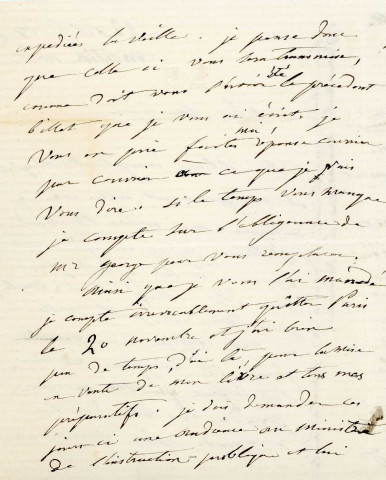 expédiées la veille. je pense donc
que celle ci vous sera transmise,
comme doit vous l'avoir été le précédent
billet que je vous ai écrit. je
vous en prie faites moi réponse courrier
par courrier à ce que je vais
vous dire. si le temps vous manque
je compte sur l'obligeance de
mr george pour vous remplacer.
ainsi que je vous l'ai mandé
je compte irrévocablement quitter Paris
le 20 novembre et j'ai bien
peu de temps d'ici là, pour la mise
en vente de mon livre et tous mes
préparatifs. je dois demander ces
jours ci une audience au ministre
de l'instruction publique et lui